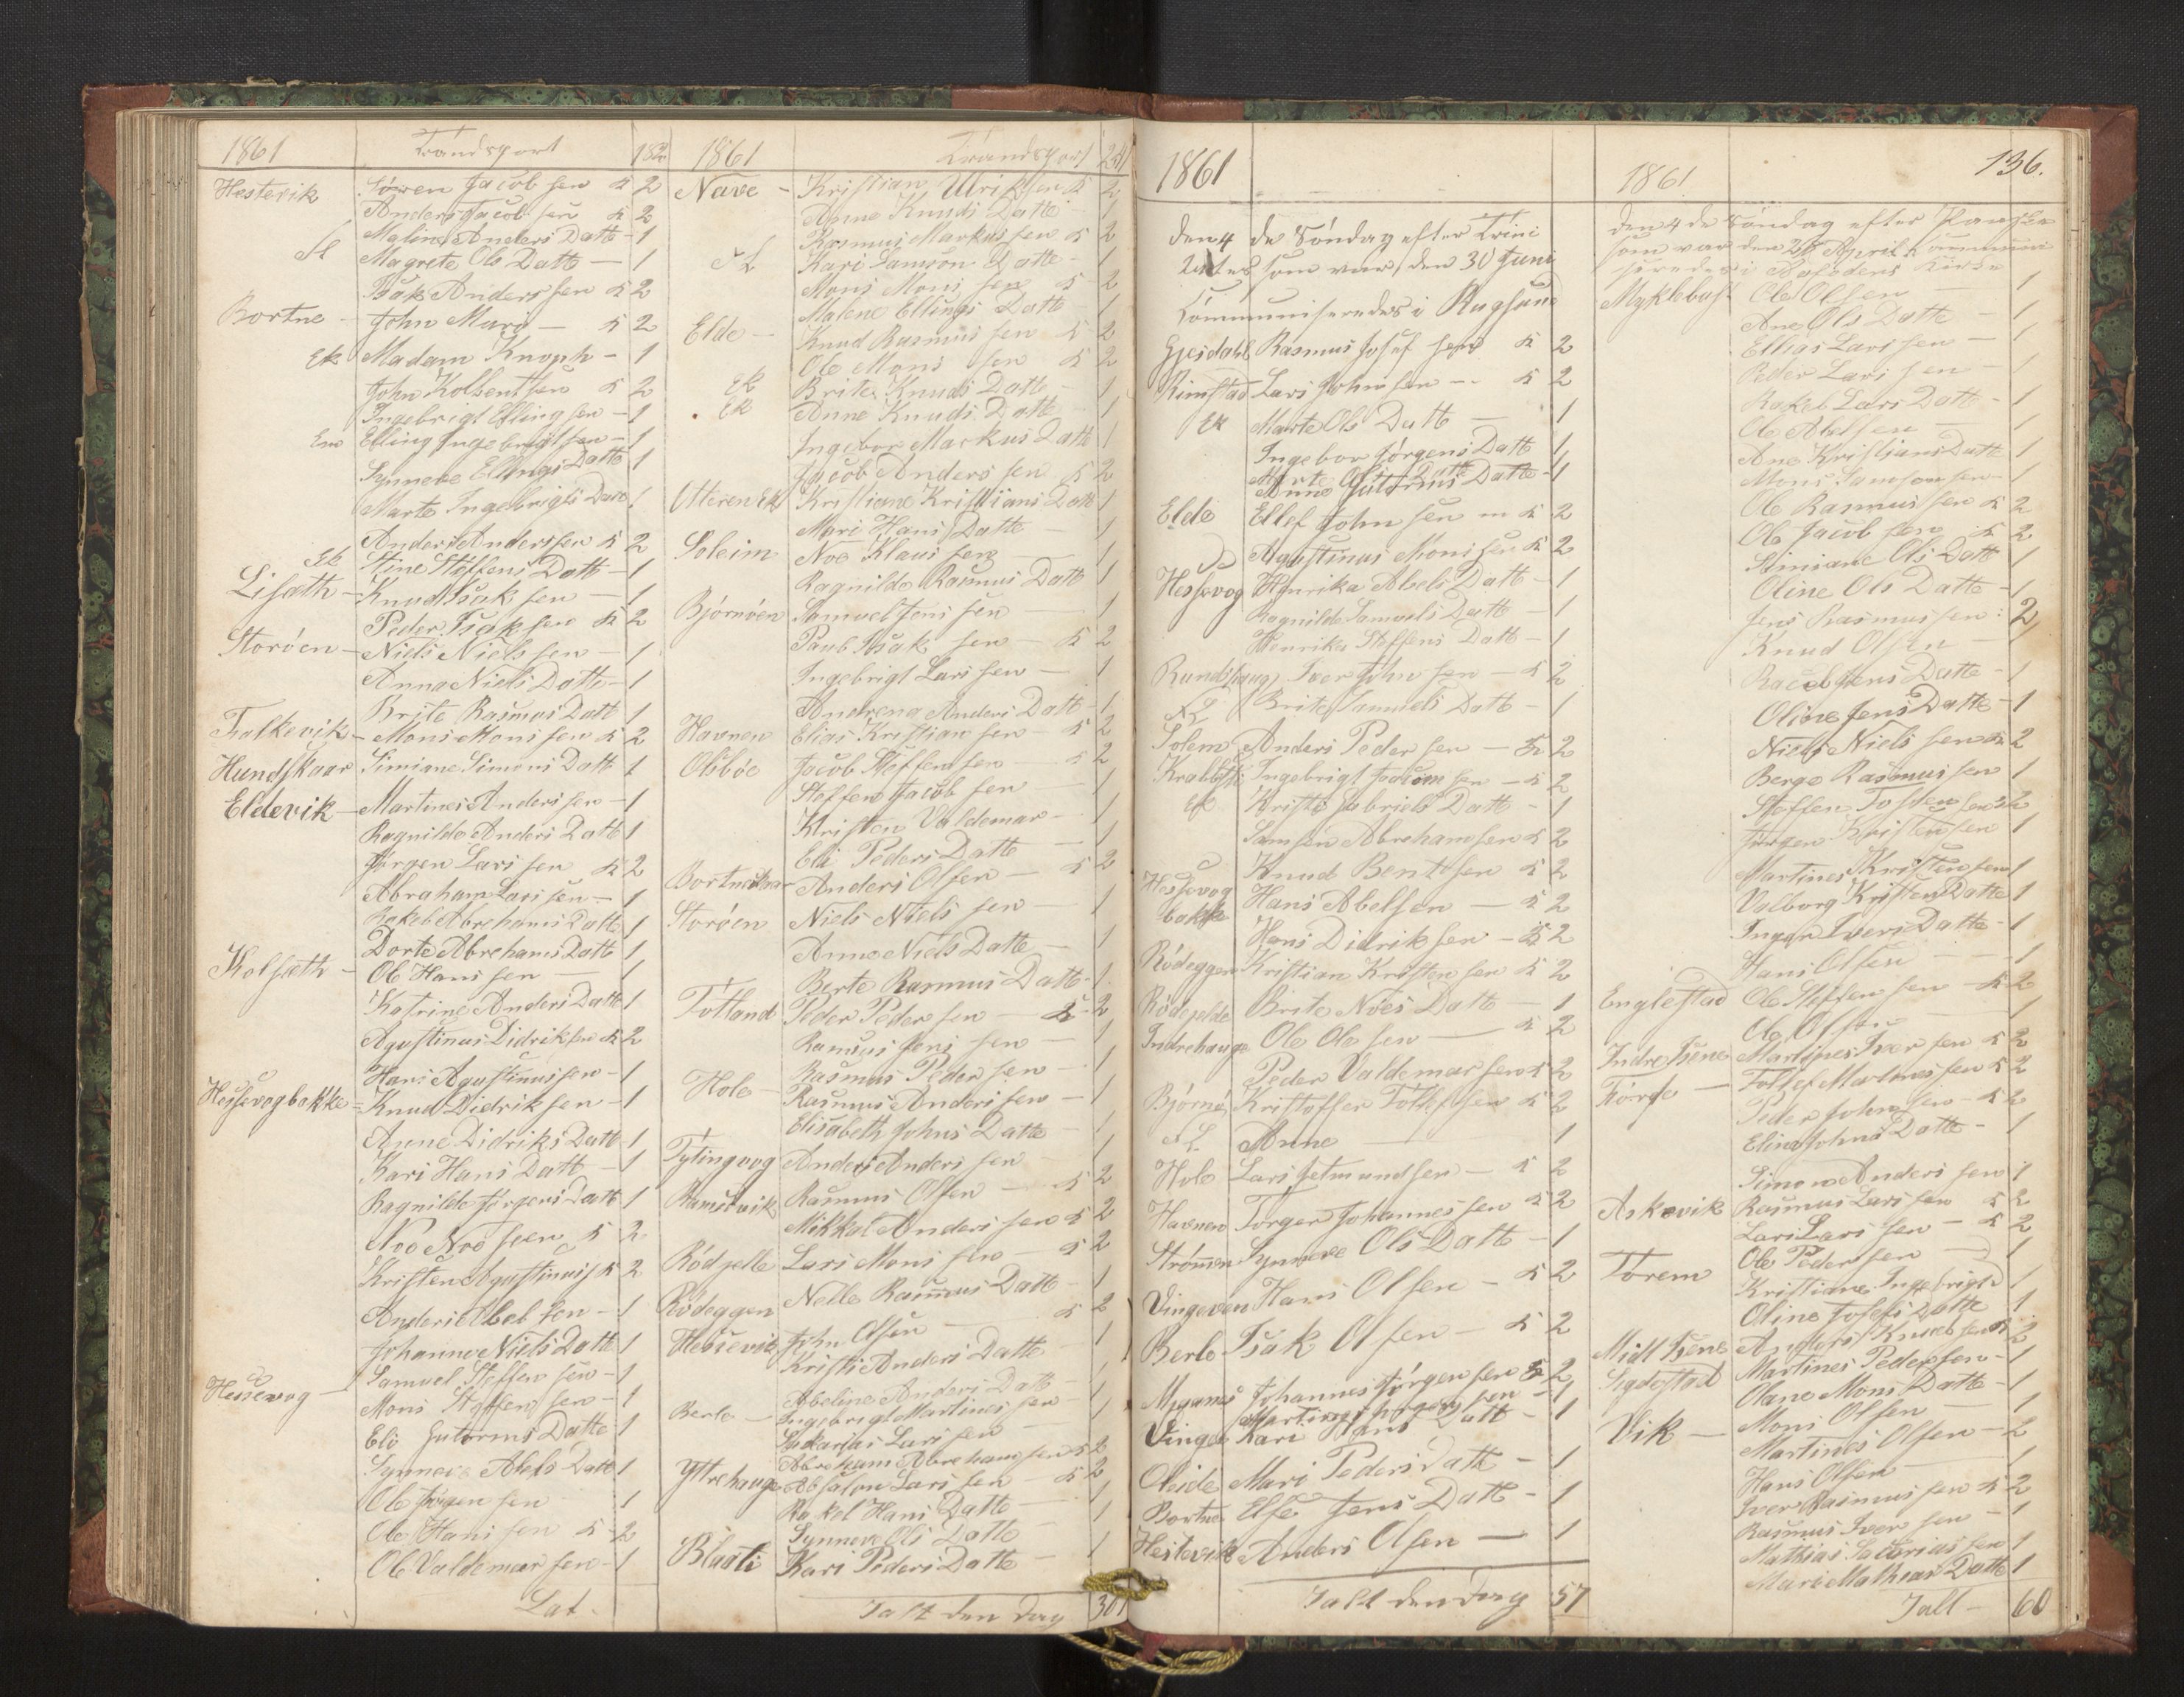 1861 Trandsport 182
Hestevik Sören Jacob sen K 2
Anders Jacob sen K 2
Malina Anders Datt 1
Magrete Ols Datt 1
Isak Anders sen K 2
Bortne John Mary K 2
Ek Madam Knoph 1
John Kolbent sen K 2
Ingebrigt Elling sen 1
Elling Ingebrigt sen 1
Synneve Ellings Datt 1
Marte Ingebrigts Datt 1
Anders Anders sen K 2
Ek Stine Steffens Datt 1
Lisæth Knud Isak sen 1
Peder Isak sen K 2
Storöen Niels Niels sen 1
Anna Niels Datte 1
Brite Rasmus Datt 1
Falkevik Mons Mons sen K 2
Hundskaar Simiane Simons Datt 1
Eldevik Martines Anders sen 1
Ragnilde Anders Datt 1
Jörgen Lars sen K 2
Abraham Lars sen 1
Rakel Abrehams Datte 1
Dorte Abrehams Datt 1
Kolsæth Ole Hans sen 1
Katrine Anders Datt 1
Agustinus Didrik sen K 2
Hans Agustinus sen 1
Hessevogbakke Knud Didrik sen 1
Anne Didriks Datt 1
Kari Hans Datt 1
Ragnilde Jörgens Datt 1
Noe Noe sen K 2
Kristen Agustinus K 2
Anders Abel sen 1
Johanne Niels Datt 1
Samuel Steffen sen 1
Hessevog Mons Steffen sen 1
Eli Gutorms Datte 1
Synneve Abels Datt 1
Ole Jörgen sen 1
Ole Hans sen K 2
Ole Valdemar sen 1
Lat.
1861 Trandsport
Nave Kristian Ulrik sen K 2
Anne Knuds Datte 1
Rasmus Markus sen K 2
Kari Samson Datte 1
Mons Mons sen K 2
Malene Ellings Datte 1
Elde Knud Rasmus sen K 2
Ole Mons sen K 2
Ek Brite Knuds Datte 1
Ek Anne Knuds Datte 1
Ingebor Markus Datt 1
Jacob Anders sen K 2
Utteren Ek Kristiane Kristians Datt 1
Mari Hans Datte 1
Soleim Noe Klaus sen 1
Ragnilde Rasmus Datt 1
Björnöen Samuel Jens sen 1
Paul Isak sen K 2
Ingebrigt Lars sen 1
Andrena Anders Datt 1
Havnen Elias Kristian sen K 2
Olsböe Jacob Steffen sen K 2
Steffen Jacob sen 1
Kristen Valdemar 1
Eli Peders Datte 1
Anders Olsen K 2
Storöen Niels Niels sen 1
Anne Niels Datte 1
Berte Rasmus Datte 1
Totland Peder Peder sen K 2
Rasmus Jens sen 1
Rasmus Peder sen 1
Hole Rasmus Anders sen 1
Elisabeth Johns Datte 1
Tytingvog Anders Anders sen 1
Ramsvik Rasmus Olsen K 2
Mikkal Anders sen K 2
Rödpelle Lars Mons sen K 2
Rödeggen Nelle Rasmus Datt 1
Hessevik John Olsen K 2
Kristi Anders Datte 1
Abeline Anders Datt 1
Berle Ingebrigt Martines sen 1
Sakarias Lars sen 1
Abreham Abreham sen K 2
Yttrehauge Absalon Lars sen K 2
Rakel Hans Datte 1
Synneve Ols Datte 1
Blaali Kari Peders Datte 1
Ialt den dag 301
1861
Den 4 de Söndag efter Trini
tates som var den 30 Juni
Kommuniseredes i Rugsund
Gjesdahl Rasmus Josef sen K 2
Rimstad Lars John sen K 2
Ek Marte Ols Datt 1
Ingebor Jörgens Datt 1
Marte Ols Datt
Anne Gutorms Datte 1
Elde Ellef John sen K 2
Do Agustinus Mons sen K 2
Hessevog Henrika Abels Datt 1
Ragnilde Samuels Datt 1
Henrika Steffens Datt 1
Rundshaug Iver John sen K 2
Brite Samuels Datt 1
Solem Anders Peder sen K 2
Ingebrigt Joacim sen K 2
Ek Kristi Gabriels Datt 1
Samsen Abreham sen K 2
Knud Bent sen K 2
Hessevog
bakke Hans Abelsen K 2
Hans Didrik sen K 2
Rödeggen Kristian Kristen sen K 2
Rödpelde Brite Noes Datt 1
Indrehauge Ole Ole sen K 2
Peder Valdemar sen K 2
Björnö Kristoffer Tollef sen K 2
Anne 1
Hole Lars Jetmund sen K 2
Havnen Torger Johannes sen K 2
Strömen Synneve Ols Datt 1
Vingeven Hans Olsen K 2
Berle Isak Olsen K 2
Johannes Jörgen sen K 2
Martines Jörgen sen 1
Vinge Kari Hans Datt 1
Oleide Mari Peders Datt 1
Bortne Else Jens Datt 1
Hestevik Anders Olsen 1
Ialt den dag 57
1861 136.
Den 4 de Söndag efter Paaske
som var den 28 April Kommuni
seredes i Aafodens Kirke
Myklebust Ole Olsen 1
Ane Ols Datte 1
Ellias Lars sen 1
Peder Lars sen 1
Rakel Lars Datt 1
Ole Abelsen 1
Ane Kristians Datt 1
Mons Samson sen 1
Ole Rasmus sen K 2
Ole Jacob sen K 2
Simiane Ols Datt 1
Oline Ols Datte 1
Jens Rasmus sen 2
Knud Olsen
Racel Jens Datte 1
Oline Jens Datte 1
Niels Niels sen K 2
Berge Rasmus sen 1
Steffen Tosten sen K 2
Jörgen Kristen sen 1
Martines Kristen sen 1
Valborg Kristen Datte 1
Inger Ivers Datte 1
Hans Olsen 1
Englestad Ole Steffen sen K 2
Ole Olsen 1
Indre Isene Martines Iver sen K 2
Förde Tollef Martines sen K 2
Peder John sen K 2
Elina Johns Datte 1
Simon Anders sen 1
Askevik Rasmus Lars sen K 2
Lars Lars sen K 2
Törem Ole Peder sen 1
Kristiane Ingebrigts 1
Oline Josefs Datte 1
Midt Isene Anders Knud sen K 2
Sigdestad Martines Peder sen 1
Olane Mons Datte 1
Vik Mons Olsen 1
Martines Olsen 2
Hans Olsen 1
Iver Rasmus sen K 2
Rasmus Iver sen 1
Mathias Sacarias sen 1
Mari Mathias Datte 1
Ialt 60